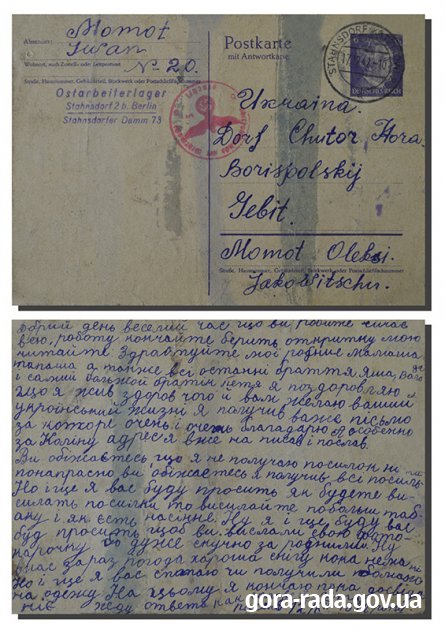 Momot
Absender:
Iwan
№ 20.
Wohnort, auch Zustell- oder Leitpostamt
Straße, Hausnummer, Gebäudeteil, Stockwerk oder Postschließfachnummer
Ostarbeiterlager
Stahnsdorf 2 b. Berlin
Stahnsdorfer Damm 73
Postkarte
mit Antwortkarte
STAHNSDORF
DEUTSCHES REICH
Ukraina.
Dorf Chutor Hora
Borispolskij
Gebit.
Momot Oleksi.
Straße, Hausnummer, Gebäudeteil, Stockwerk oder Postschließfachnummer
Jakowitschu.
Добрий день веселий час що ви робите
роботу кончайте беріть открытку мою
читайте. Здравствуйте мої родние мамаша
папаша а также всі останні браття Яша,
і самий більжой братік Петя я поздоровляю
що я жив здоров чого и вам желаю вашій
украінській жизні я получив ваше письмо
за которе очень і очень благадарю и особенно
за Коліну адрес я вже на писав і послав.
Ви обіжаєтесь що я не получаю посилок
понапрасно ви обіжаєтесь я получив всі
Но і ще я вас буду просить як будете ви-
силать посилки то висилайте побольш таб-
аку і як єсть насіння. Ну я і ще буду вас
буд просить щоб ви вислали свою фото-
карочку бо дуже скучно за родними. Ну
у нас зараз погода хороша снігу пока нема
Но і ще я вас питаю чи получили
на одежу. На цьому я кончаю пока досвідан-
ння жду ответа
gora-rada.gov.ua